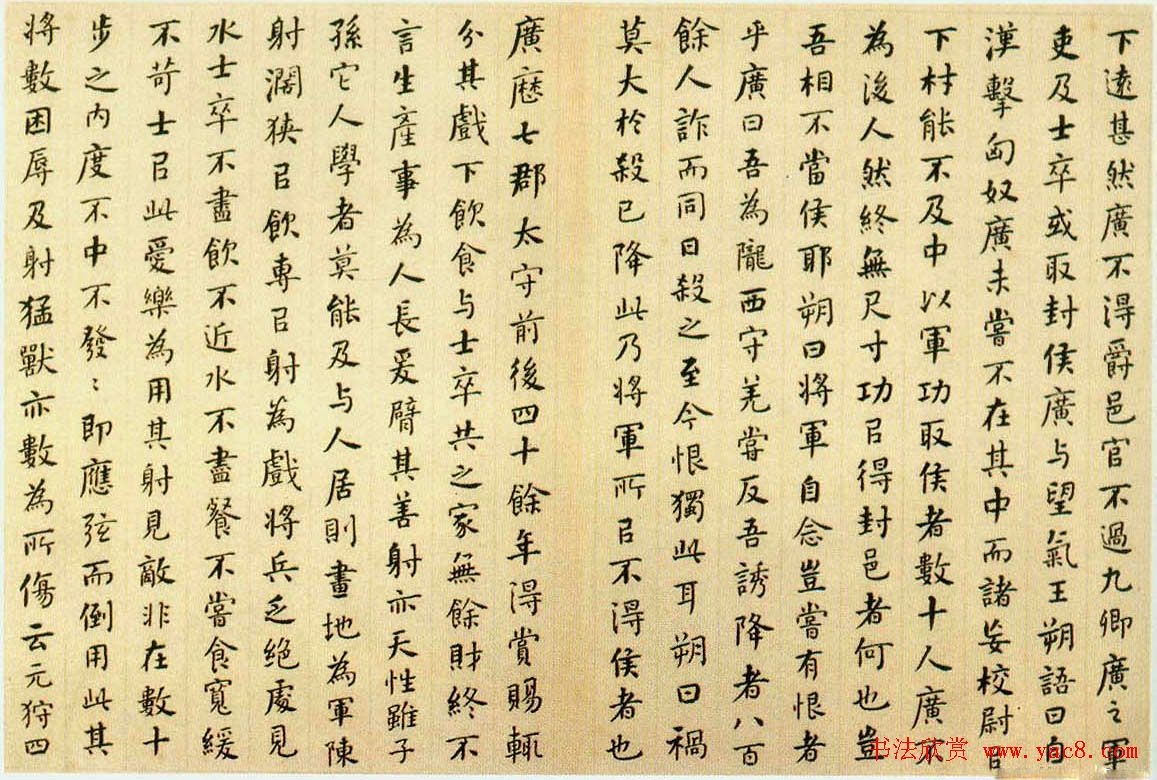 下遠甚然廣不得爵邑官不過九卿廣之軍
吏及士卒或取封侯廣与望氣王朔語曰自
漢擊匈奴廣未嘗不在其中而諸妄校尉㠯
下材能不及中以軍功取侯者數十人廣不
為後人然終無尺寸功㠯得封邑者何也豈
吾相不當侯耶朔曰將軍自念豈嘗有恨者
乎廣曰吾為隴西守羌嘗反吾誘降者八百
餘人詐而同日殺之至今恨獨此耳朔曰禍
莫大於殺已降此乃將軍所㠯不得侯者也
廣歷七郡太守前後四十餘年得賞賜輒
分其戲下飲食与士卒共之家無餘財終不
言生產事為人長爰臂其善射亦天性雖子
孫它人學者莫能及与人居則畫地為軍陳
射濶狹㠯飲專㠯射為戲將兵乏絕處見
水士卒不盡飲不近水不盡餐不嘗食寬緩
不苛士㠯此愛樂為用其射見敵非在數十
步之內度不中不發〻即應弦而倒用此其
將數困辱及射猛獸亦數為所傷云元狩四
书法欣赏 www.yac8.com